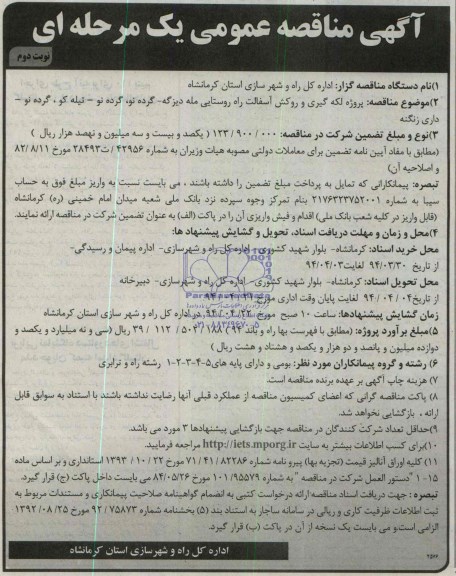 آگهی مناقصه عمومی یک مرحله ای
نوبت دوم
۱)نام دستگاه مناقصه گزار: اداره کل راه و شهر سازی استان کرمانشاه
۲)موضوع مناقصه: پروژه لکه گیری و روکش آسفالت راه روستایی مله دیزگه- گرده نو، گرده نو - تیله کو ، گرده نو -
داری زنگنه
۳)نوع و مبلغ تضمین شرکت در مناقصه: ۱۲۳/۹۰۰/۰۰۰ ( یکصد و بیست و سه میلیون و نهصد هزار ریال )
(مطابق با مفاد آیین نامه تضمین برای معاملات دولتی مصوبه هیات وزیران به شماره ۴۲۹۵۶ /ت۲۸۴۹۳ مورخ ۸۲/۸/۱۱
و اصلاحیه آن)
تبصره: پیمانکارانی که تمایل به پرداخت مبلغ تضمین را داشته باشند ، می بایست نسبت به واریز مبلغ فوق به حساب
سیبا به شماره ۲۱۷۶۲۳۳۷۵۲۰۰۱ بنام تمرکز وجوه سپرده نزد بانک ملی شعبه میدان امام خمینی (ره) کرمانشاه
(قابل واریز در کلیه شعب بانک ملی) اقدام و فیش واریزی آن را در پاکت (الف) به عنوان تضمین شرکت در مناقصه ارائه نمایند.
۴)محل و زمان و مهلت دریافت اسناد، تحویل و گشایش پیشنهاد ها:
محل خرید اسناد: کرمانشاه- بلوار شهید کشوری- اداره کل راه و شهرسازی- اداره پیمان و رسیدگی-
از تاریخ ۹۴/۰۳/۳۰ لغایت۹۴/۰۴/۰۳
محل تحویل اسناد: کرمانشاه- بلوار شهید کشوری- اداره کل راه و شهرسازی- دبیرخانه
از تاریخ۹۴/۰۴/۰۴ لغایت پایان وقت اداری مورخ
زمان گشایش پیشنهادها: ساعت ۱۰ صبح مورخ ۹۴/۰۴/۲۲ در اداره کل راه و شهر سازی استان کرمانشاه
۵)مبلغ برآورد پروژه: (مطابق با فهرست بها راه و باند ۹۴) ۳۹/۱۱۲/۵۰۲/۱۸۸ ریال (سی و نه میلیارد و یکصد و
دوازده میلیون و پانصد و دو هزار و یکصد و هشتاد و هشت ریال )
۶) رشته و گروه پیمانکاران مورد نظر: بومی و دارای پایه های۵-۴-۳-۲-۱ رشته راه و ترابری
۷) هزینه چاپ آگهی بر عهده برنده مناقصه است.
۸) پاکت مناقصه گرانی که اعضای کمیسیون مناقصه از عملکرد قبلی آنها رضایت نداشته باشند با استناد به سوابق قابل
ارائه ، بازگشایی نخواهد شد.
۹)حداقل تعداد شرکت کنندگان در مناقصه جهت بازگشایی پیشنهادها ۳ مورد می باشد.
۱۰)برای کسب اطلاعات بیشتر به سایت http://iets.mporg.ir مراجعه فرمایید.
۱۱) کلیه اوراق آنالیز قیمت (تجزیه بها) پیرو نامه شماره ۷۱/۴۱/۸۲۲۸۶ مورخ ۱۳۹۳/۱۰/۲۲ استانداری و بر اساس ماده
۱-۱۵ "دستور العمل شرکت در مناقصه " به شماره ۱۰۱/۹۵۵۷۹ مورخ ۸۴/۰۵/۲۶ می بایست داخل پاکت (ج) قرار گیرد.
تبصره : جهت دریافت اسناد مناقصه ارائه درخواست کتبی به انضمام گواهینامه صلاحیت پیمانکاری و مستندات مربوط به
ثبت اطلاعات ظرفیت کاری و ریالی در سامانه ساجار به استناد بند (۵) بخشنامه شماره ۹۲/۷۵۸۷۳ مورخ ۱۳۹۲/۰۸/۲۵
الزامی است.و می بایست یک نسخه از آن در پاکت (ب) قرار گیرد.
اداره کل راه و شهرسازی استان کرمانشاه